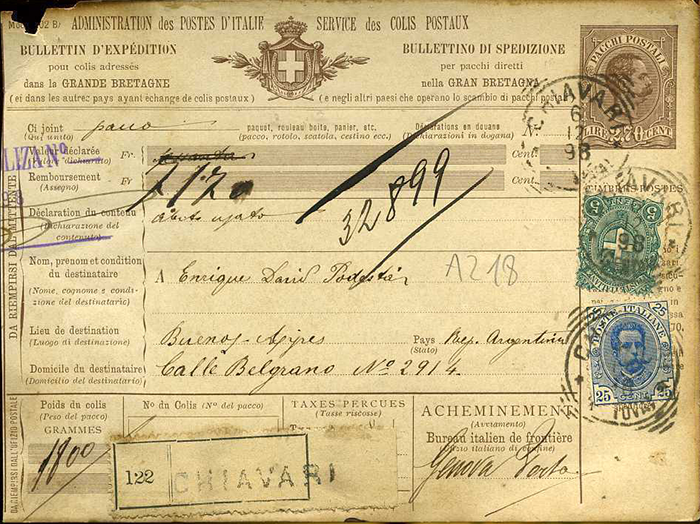 ADMINISTRATION des POSTES D'ITALIE SERVICE des COLIS POSTAUX
BULLETTIN D'EXPÉDITION
pour colis adressés
dans la GRANDE BRETAGNE
(et dans les autrez pays ayant échange de colis postaux)
BULLETTINO DI SPEDIZIONE
per pacchi diretti
nella GRAN BRETAGNA
(e negli altri paesi che operano lo scambio di pacchi postali)
PACCHI POSTALI
LIRE 2,70 CENT
CHIAVARI
6
12
98
Ci joint pacco
(Qui unito)
paquet, rouleau boîte, panier, etc.
(pacco, rotolo, scatola, involto, canestro, ecc.)
Déclarations en douane
(Dichiarazioni in dogana)
N.º
LIZA Nº
Valeur déclarée
(Valore dichiarato)
Fr. Cent.
Remboursement
(Assegno)
Fr. Cent.
TIMBRES-POSTES
DA RIEMPIRSI DAL MITTENTE
Déclaration du contenu
(Dichiarazione del contenuto)
abito usato
32899
5
CHIAVARI
98
Nom, prénom et condition du destinataire
(Nome, cognome e condizione del destinatario)
A Enrique David Podestá
A218
Lieu de destination
(Luogo di destinazione)
Buenos-Aires
Pays
(Stato)
Rep. Argentina
25 POSTE ITALIANE 25
25 25
Domicile du destinataire
(Domicilio del destinatario)
Calle Belgrano Nº 2914
DA RIEMPIRSI DALL'UFIZIO POSTALE
Poids du colis
(Peso del pacco)
GRAMMES
1800
No du Colis (N.º del pacco)
TAXES PERÇUES
(Tasse riscosse)
ACHEMINEMENT
(Avviamento)
Bureau italien de frontière
(Ufizio italiano di confine)
Genova Porto
122 CHIAVARI